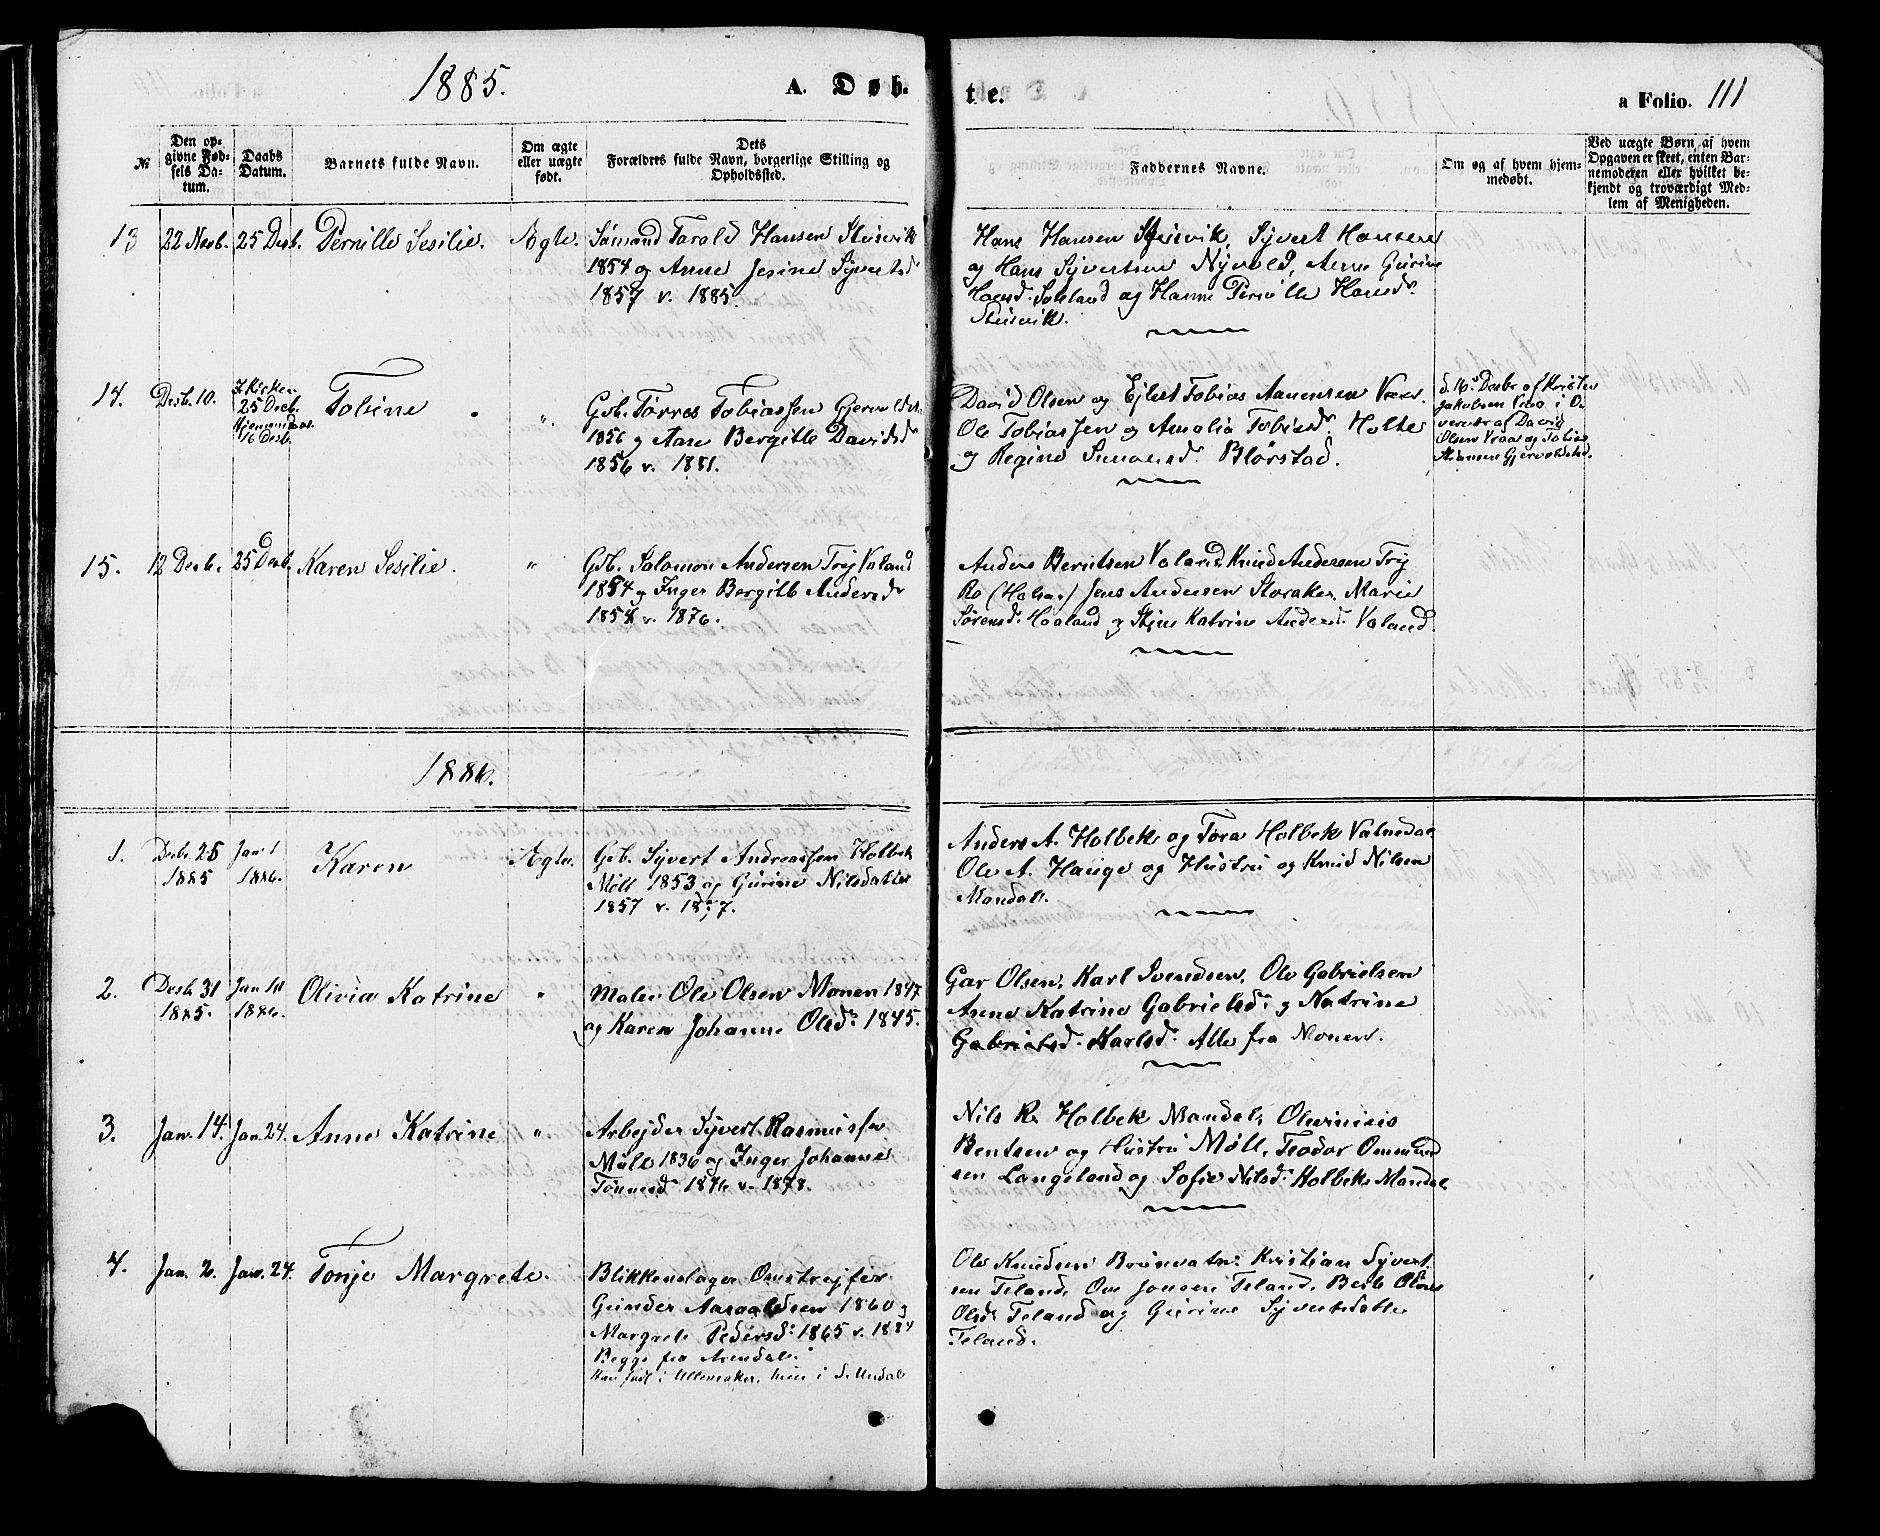 1885.
A. Døb.
te.
a Folio. 111
№
Den opgivne Fødsels Datum.
Daabs Datum.
Barnets fulde Navn.
Om ægte eller uægte født.
Dets Forældres fulde Navn, borgerlige Stilling og Opholdssted.
Faddernes Navne.
Om og af hvem hjemmedøbt.
Ved uægte Børn af hvem Opgaven er skeet, enten Barnemoderen eller hvilket bekjendt og troværdigt Medlem af Menigheden.
13 22 Novb. 25 Desb. Pernille Sesilie. Ægte.
Sømand Tarald Hansen Stusvik
1854 og Anne Jesine Syvertsd
1857 v. 1885.
Hans Hansen Stusvik, Syvert Hansen
og Hans Syvertsen Nyvold, Anne Gurine
Hansd. og Hanne Pernille Hansd.
Stusvik.
14. Desb. 10. I Kirken
25 Desb.
Hjemmedøbt
16 Desb.
Tobine "
Gbr. Tørres Tobiassen
1856 og Aase Bergitte Davidsd
1856 v. 1881.
David Olsen og Ejlert Tobias Aanensen Vraa.
Ole Tobiassen og Amalia Tobiasd. Holte
og Regine Simonsd. Blørstad.
d. 16. Desbr af Kristen
Jakobsen Vraa i O-
vervær af David
Olsen Vraa og Tobias
15. 12 Desb. 25 Desb. Karen Sesilie. "
Gbr. Salomon Andersen Try Valand
1854 og Inger Bergitte Andersd
1854 v. 1876.
Anders Berntsen Valand Knud Andersen Try
Ro (Halsaa) Jens Andersen Storaker, Marie
Sørensd. Haaland og Stine Katrine Andersd. Valand.
1886.
1. Desb. 25
1885
Jan. 1
1886.
Karen Ægte.
Gbr. Syvert Andreassen Holbek
Møll 1853 og Gurine Nilsdatter
1857 v. 1877.
Anders A. Holbek og Tora Holbek
Ole A. Hauge og Hustru og Knud Nilsen
Mandal.
2. Desb 31
1885.
Jan 10
1886.
Olivia Katrine "
Maler Ole Olsen Monen 1847
og Karen Johanne Olsd. 1845.
Gar Olsen, Karl Svendsen, Ole Gabrielsen
Arene Katrine Gabrielsd. og Katrine
Gabrielsd. Karlsd. Alle fra Monen.
3. Jan. 14. Jan. 24. Anne Katrine "
Arbejder Syvert Rasmussen
Møll 1836 og Inger Johanne
Tønnesd 1846 v. 1878.
Nils R. Holbek Mandal, Olevinius
Bentsen og Hustru Møll, Teodor Ommund
sen Langeland og Sofie Nilsd. Holbek Mandal
4. Jan. 2. Jan. 24. Tonje Margrete.
Blikkenslager Omstrejfer
Gunder Aasaldsen 1860 og
Margrete Pedersd. 1865 v. 1884
Begge fra Arendal.
Han født i Ullensaker, hun i S. Undal
Ole Knudsen Brunvatne Kristian Syvert
sen Feland, Ove Jonsen Feland, Berte Oline
Olsd. Feland og Gurine Syvertsdatter
Feland.